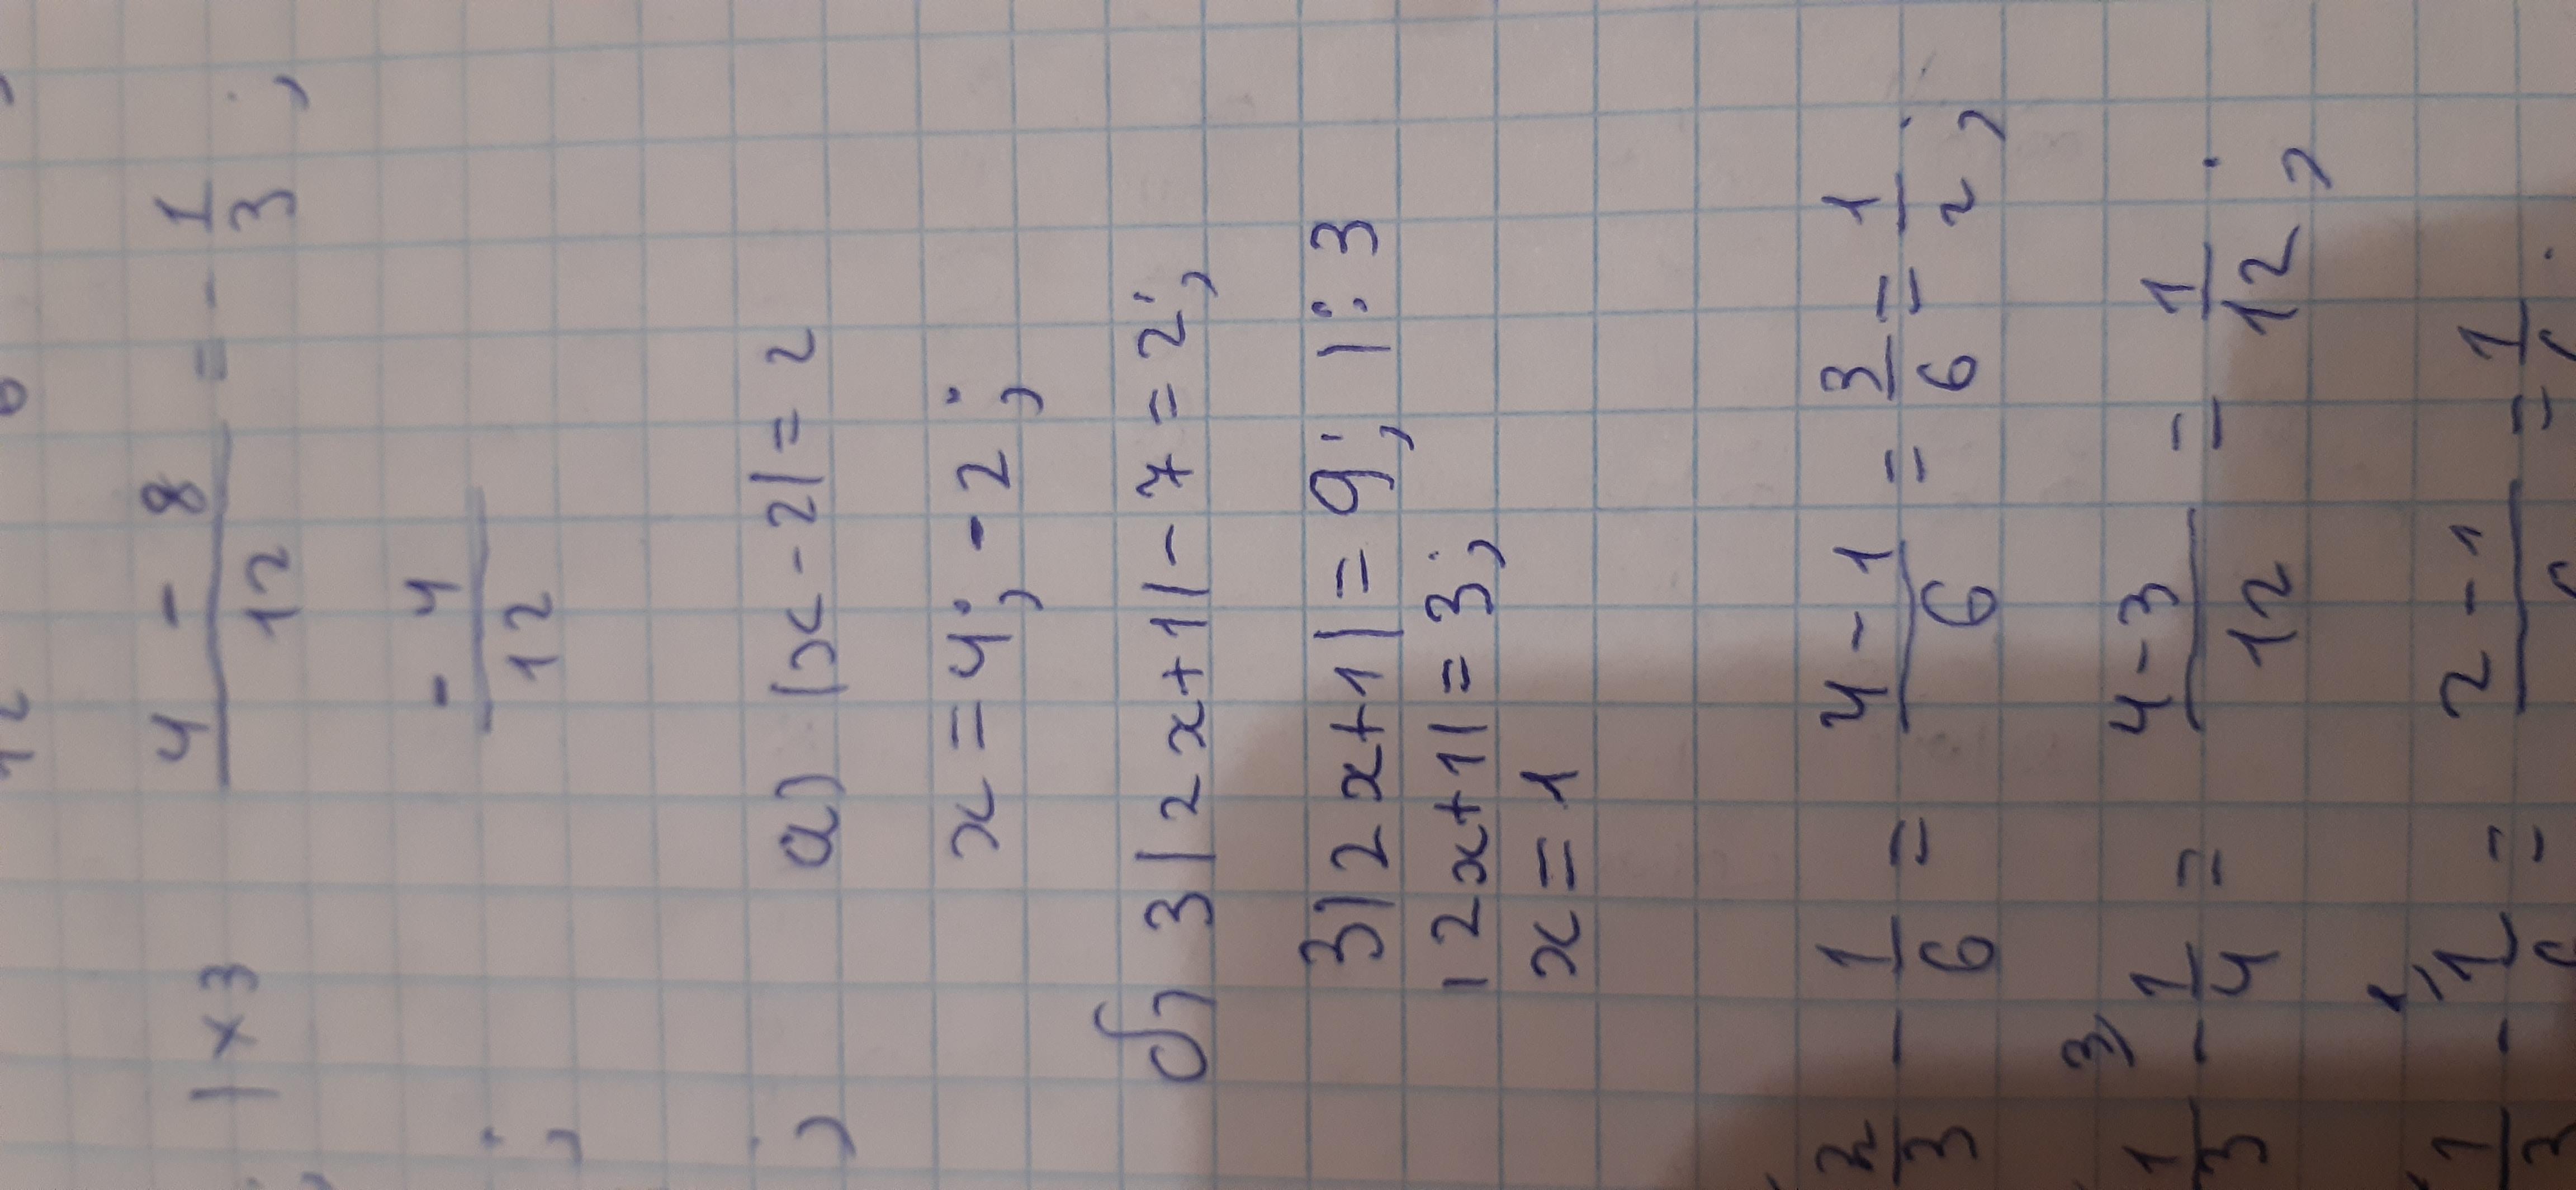 4 - 8 / 12 = - 1/3 ;
| × 3
- 4/12
;
а) |x - 2| = 2
;
x = 4; -2;
б) 3|2x+1| - 7 = 2;
3|2x+1| = 9; |: 3
|2x+1| = 3;
x = 1
2/3 - 1/6 = 4-1/6 = 3/6 = 1/2;
1/3 - 3) 1/4 = 4-3/12 = 1/12;
1/3 - 1) 1 = 2-1 = 1